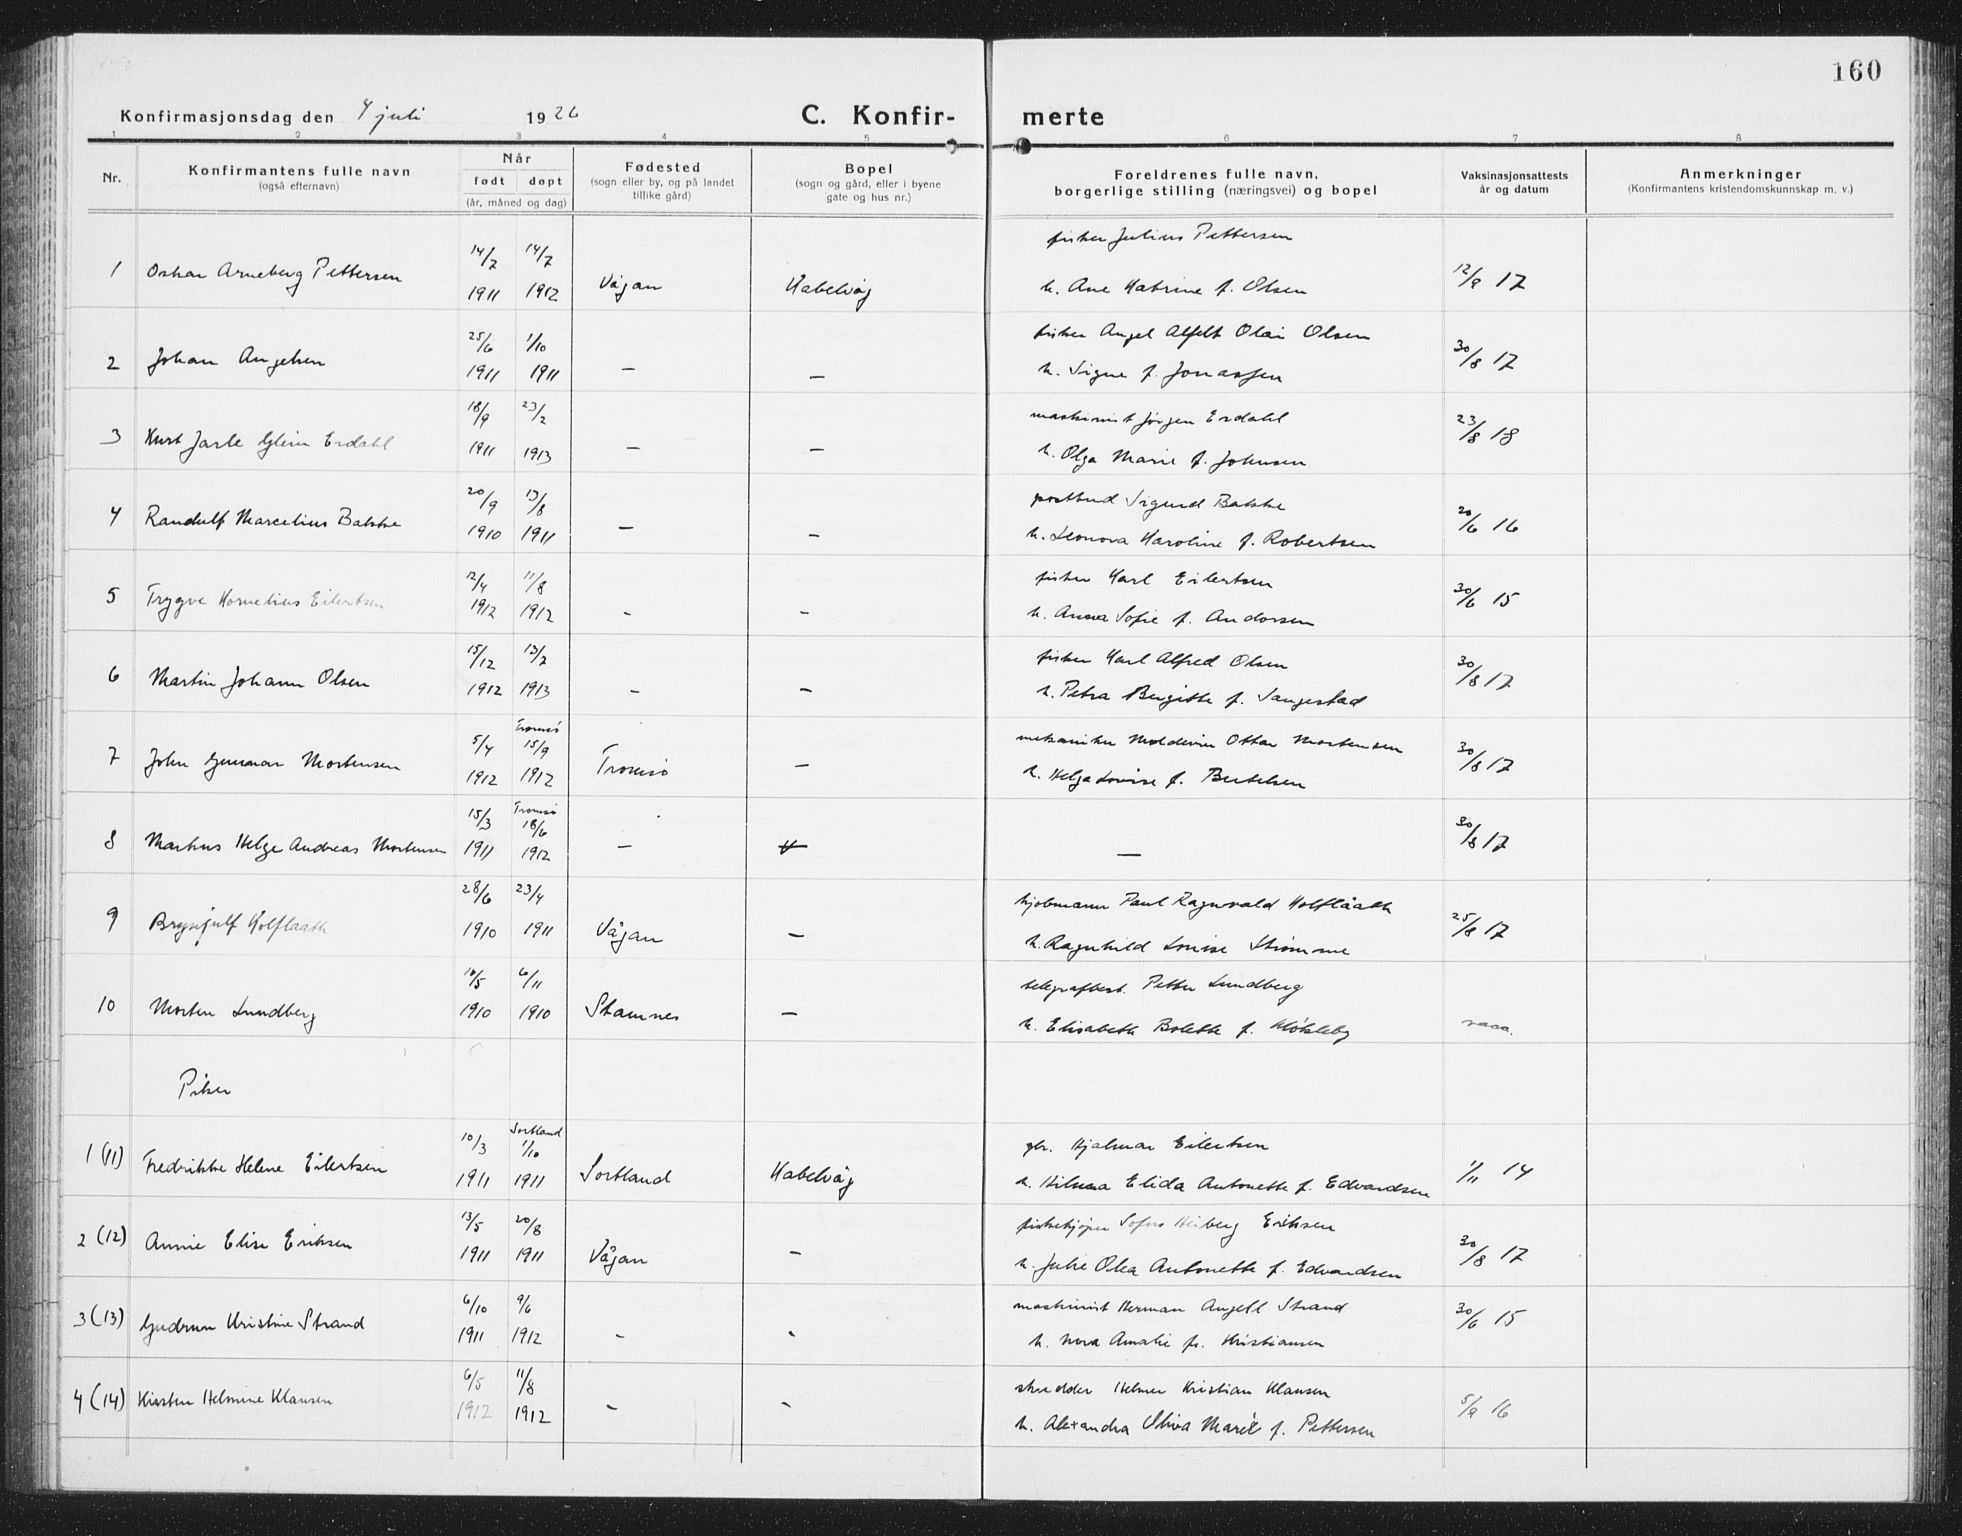 160
Konfirmasjonsdag den 4 juli 1926 C. Konfir- merte
1 2 3 4 5 6 7 8
Nr. Konfirmantens fulle navn (også efternavn) Når født døpt (år, måned og dag) Fødested (sogn eller by, og på landet tillike gård) Bopel (sogn og gård, eller i byene gate og hus nr.) Foreldrenes fulle navn, borgerlige stilling (næringsvei) og bopel Vaksinasjonsattests år og datum Anmerkninger (Konfirmantens kristendomskunnskap m. v.)
14/7 14/7 fisker Julius Pettersen
1 Oskar Arneberg Pettersen 1911 1912 Vågan Kabelvåg h. Ane Katrine f. Olsen 12/9 17
25/6 1/10 fisker Angel Alfelt Olai Olsen
2 Johan Angelsen 1911 1911 — — h. Signe f. Jonassen 30/8 17
18/9 23/2 maskinist Jørgen Erdahl
3 Kurt Jarle Glein Erdahl 1911 1913 — — h. Olga Marie f. Johnsen 23/8 18
20/9 13/8 postbud Sigurd Bakke
4 Randulf Marcelius Bakke 1910 1911 — — h. Leonora Karoline f. Robertsen 20/6 16
12/4 11/8 fisker Karl Eilertsen
5 Trygve Kornelius Eilertsen 1912 1912 - - h. Anna Sofie f. Andorsen 30/6 15
15/12 13/7 fisker Karl Alfred Olsen
6 Martin Johann Olsen 1912 1913 - - h. Petra Bergitte f. Sangestad 30/8 17
5/4 Tromsø 15/9 mekaniker Moldevin Ottar Mortensen
7 John Gunnar Mortensen 1912 1912 Tromsø — h. Helga Lovise f. Bertelsen 30/8 17
15/3 Tromsø 18/6
8 Markus Helge Andreas Mortensen 1911 1912 — — — 30/8 17
28/6 23/4 kjøbmann Paul Ragnvald Holflåath
9 Brynjulf Holflaath 1910 1911 Vågan — h. Ragnhild Louise Strømme 25/8 17
6/11 telegrafbest. Petter Lundberg
10 Morten Lundberg 1910 1910 Stamnes — h. Elisabeth Bolette f. Kløkleby
Piker
10/3 Sortland 1/10 gbr. Hjalmar Eilertsen
1 (11) Fredrikke Helene Eilertsen 1911 1911 Sortland Kabelvåg h. Hilma Elida Antonette f. Edvardsen 1/11 14
13/5 20/8 fiskekjøper Sofus Heiberg Eriksen
2 (12) Annie Elise Eriksen 1911 1911 Vågan - h. Julie Olea Antonette f. Edvardsen 30/8 17
6/10 9/6 maskinist Herman Angell Strand
3 (13) Gudrun Kristine Strand 1911 1912 - - h. Nora Amalie f. Kristiansen 30/6 15
6/5 11/8 skredder Helmer Kristian Klausen
4 (14) Kirsten Helmine Klausen 1912 1912 - - h. Alexandra Oliva Marie f. Pettersen 5/9 16